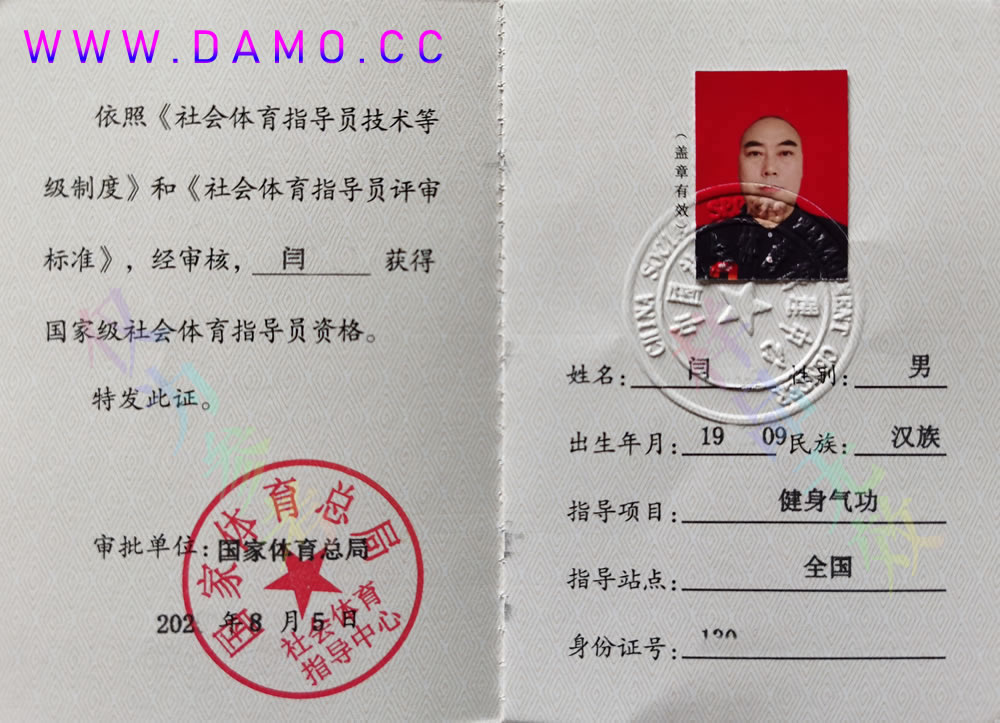 WWW.DAMO.CC
依照《社会体育指导员技术等
级制度》和《社会体育指导员评审
标准》，经审核，闫 获得
国家级社会体育指导员资格。
特发此证。
审批单位：国家体育总局
202 年8月5日
国家体育总局
社会体育
指导中心
（盖章有效）
姓名：闫 性别：男
出生年月：19 09 民族：汉族
指导项目：健身气功
指导站点：全国
身份证号：